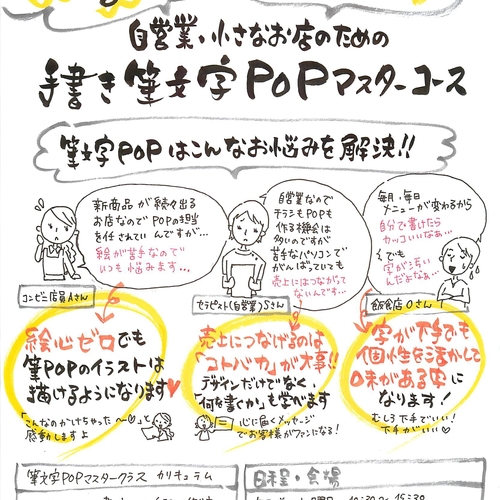 自営業・小さなお店のための
手書き筆文字POPマスターコース
筆文字POPはこんなお悩みを解決!!
新商品が続々出る
お店なのでPOPの担当
を任されていんですが…
絵が苦手なので
いつも悩みます…
コンビニ店員Aさん
自営業なので
チラシもPOPも
作る機会は
多いのですが
苦手なパソコンで
がんばっていても
売上にはつながらて
ないんです…
セラピスト(自営業)Sさん
毎月、毎日
メニューが変わるから
自分で書けたら
カッコいいなぁ…
でも
字がきちゃ
んだよなぁ…
飲食店Oさん
絵心ゼロでも
筆POPのイラストは
描けるようになります
「こんなのかけちゃった〜♡」と
感動しますよ
売上につなげるのは
「コトバ力」が大事!!
デザインだけでなく、
「何を書くか」も学べます
心に届くメッセージ
でお客様がファンになる!
字が下手でも
個性を活かして
味がある字に
なります!
むしろ下手でいい!
下手がいい♡
筆文字POPマスタークラス カリキュラム
日程・会場